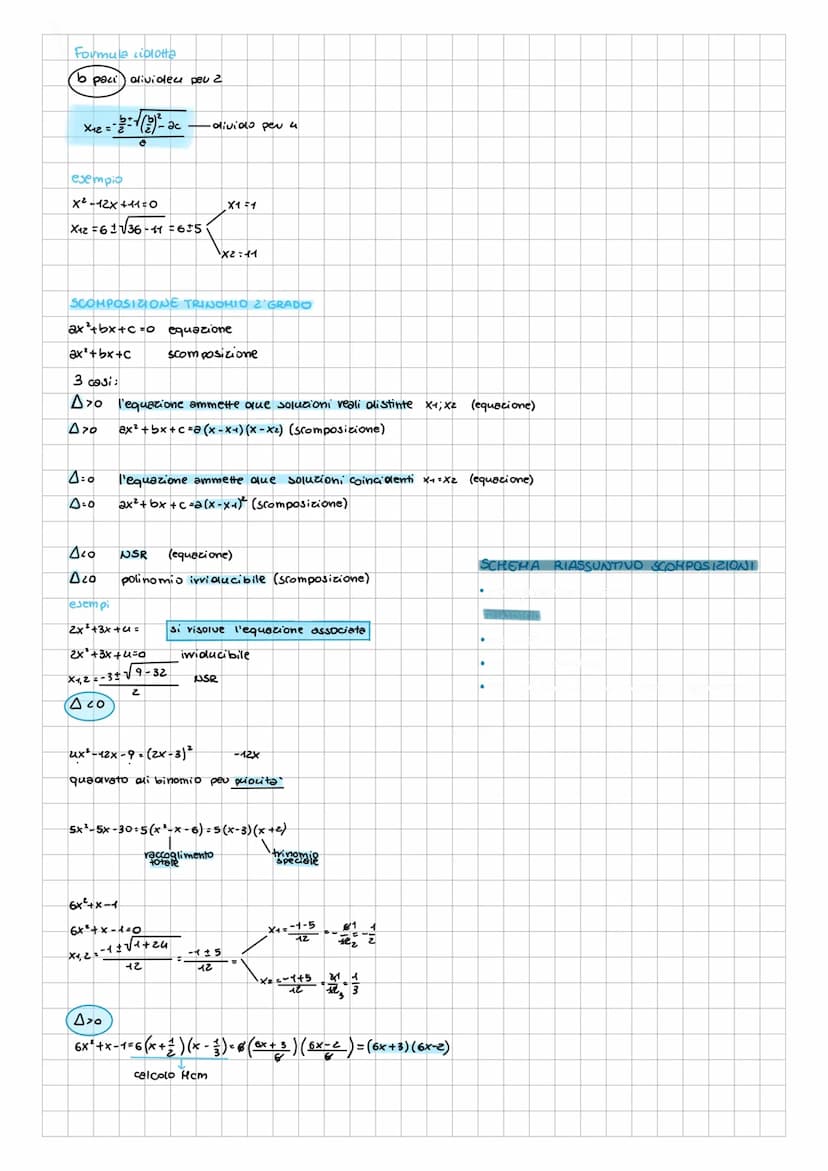 Formula ridotta
b pari dividere per 2
x12 = -b/2 ± √((b/2)² - ac) / a — divido per 4
esempio
x² - 12x + 11 = 0
x12 = 6 ± √36 - 11 = 6 ± 5
x1 = 1
x2 = 11
SCOMPOSIZIONE TRINOMIO 2° GRADO
ax² + bx + c = 0 equazione
ax² + bx + c scomposizione
3 casi:
Δ>0 l'equazione ammette due soluzioni reali distinte x1; x2 (equazione)
Δ>0 ax² + bx + c = a(x - x1)(x - x2) (scomposizione)
Δ=0 l'equazione ammette due soluzioni coincidenti x1 = x2 (equazione)
Δ=0 ax² + bx + c = a(x - x1)² (scomposizione)
Δ<0 NSR (equazione)
Δ<0 polinomio irriducibile (scomposizione)
SCHEMA RIASSUNTIVO SCOMPOSIZIONI
esempi
2x² + 3x + 4 = si risolve l'equazione associata
2x² + 3x + 4 = 0 irriducibile
x1,2 = -3 ± √9 - 32 / 2 NSR
Δ<0
4x² - 12x - 9 = (2x - 3)² -12x
quadrato di binomio per priorità
5x² - 5x - 30 = 5(x² - x - 6) = 5(x - 3)(x + 2)
raccoglimento totale
trinomio speciale
6x² + x - 1
6x² + x - 1 = 0
x1,2 = -1 ± √1 + 24 / 12 = -1 ± 5 / 12 =
x1 = -1 - 5 / 12 = - 6 1 / 12 2 = - 1/2
x2 = -1 + 5 / 12 = 4 1 / 12 3 = 1/3
Δ>0
6x² + x - 1 = 6(x + 1/2)(x - 1/3) = 6(6x + 3 / 6)(6x - 2 / 6) = (6x + 3)(6x - 2)
calcolo Mcm